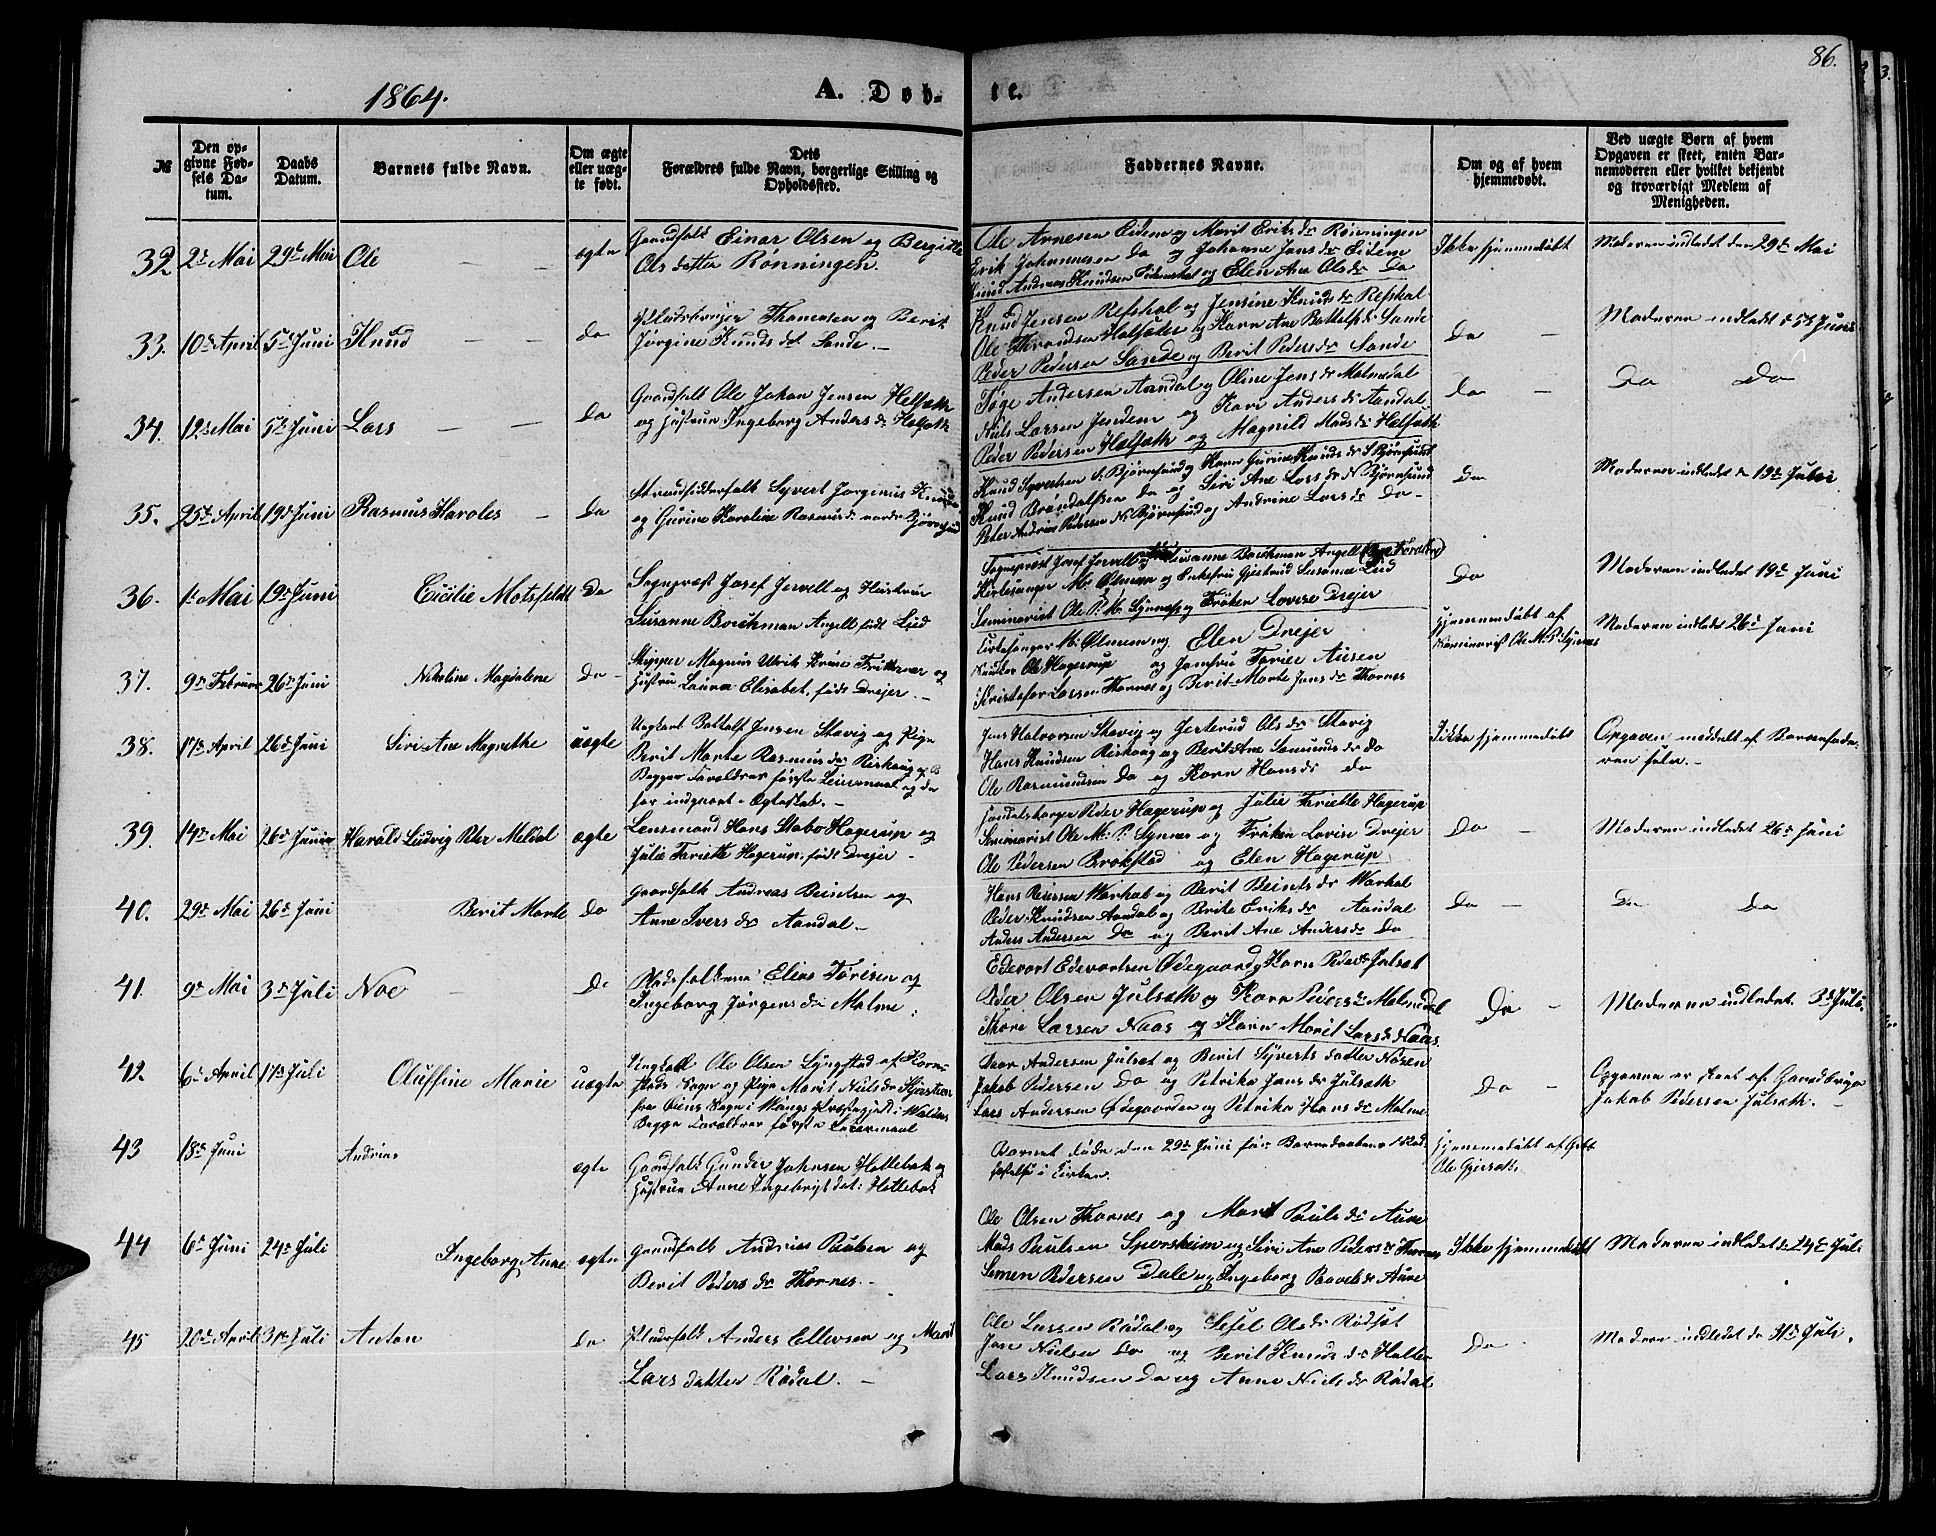 86.
1864.
A. Døb-
te.
№
Den op-
givne Fød-
sels Da-
tum.
Daabs
Datum.
Barnets fulde Navn.
Om ægte
eller uæg-
te født.
Dets
Forældres fulde Navn, borgerlige Stilling og
Opholdssted.
Faddernes Navne.
Om og af hvem
hjemmedøbt.
Ved uægte Børn af hvem
Opgaven er skeet, enten Bar-
nemoderen eller hvilket bekjendt
og troværdigt Medlem af
Menigheden.
32 2d Mai 29de Mai Ole — — ægte
Gaardfolk Einar Olsen og Bergitte
Ols datter Rønningen.
Ole Arnesen Eidem og Marit Eriks dr Rønningen
Erik Johannesen Do og Johanne Jens dr Eidem
Knud Andreas Knudsen og Elen Ane Ols dr Do
Ikke hjemmedøbt
Moderen indledet den 29de Mai
33. 10de April 5te Juni Knud — — Do
Thomassen og Berit
Jørgine Knuds dt Sande. —
Knud Jensen Refshal og Jensine Knuds dr Refshal
Ole Throndsen og Karn Ane Sande
Peder Pedersen Sande og Berit Peders dr Sande
Do —
Moderen indledet d 5te Juni
34. 12te Mai 5te Juni Lars — — Do
Gaardfolk Ole Johan Jensen Helsæth
og Hustrue Ingeborg Anders dr Helsæth
Andersen Aandal og Oline Jens dr Malmedal
Niels Larsen Jendem og Kari Anders dr Aandal
Peder Pedersen Helsæth og Magnild Mads dr Helsæth
Do —
Do Do
35. 25de April 19de Juni Rasmus Haroles — Do
Strandsidderfolk Syvert Jørginus
og Gurine Karoline Rasmus dr nordre Bjørnsund
Knud Syvertsen S. Bjørnsund og Karn Gurine Knuds dr S Bjørnsund
Knud Do og Siri Ane Lars dr N Bjørnsund
Peter Andreas Petersen N. Bjørnsund og Andrine Lars dr Do-
Do
Moderen indledet d 19de
36. 1te Mai 19de Juni Cicilie Motzfeldt Do
Sogneprest Josef Jervell og Hustrue
Susanne Borchman Angell født Lied
Sogneprest Josef Jervell Susanne Borchman Angell
Kirkesanger M. Ølmem og Enkefru Gjertrud Susanne Lied
Seminarist Ole P. M. Synnes og Frøken Lovise Drejer
Do
Moderen indledet 19de Juni
37. 9de Februar 26de Juni Nikoline Magdalene Do —
Skipper Magnus Ulrik og
Hustru Laura Elisabet, født Drejer. —
Kirkesanger M. Ølmem og Elen Drejer
Ole Hagerup og Jomfru Ausen
Kristofer Larsen Thornes og Berit Marte Jens dr Thornes
Hjemmedøbt af
Seminarist Ole M. P. Synnes
Moderen indledet 26de Juni
38. 17de April 26de Juni Siri Ane Magrethe uægte
Ungkarl Jensen Skavig og Pige
Berit Marte Rasmus dr
Begges Forældres første Leiermaal og de
har indgaaet i Ægtestab. —
Jens Halvorsen Skavig og Jertrud Ols dr Skavig
Hans Knudsen og Berit Ane Do
Ole Rasmundsen Do og Karn Hans dr Do
Ikke hjemmedøbt
Opgaven meddelt af Barnefade-
ren selv. —
39. 14de Mai 26de Juni Harald Ludvig Peter Meldal ægte
Lensmand Hans Stabo Hagerup og
Julie Hagerup, født Drejer -
Handelsborger Peder Hagerup og Julie Hagerup
Seminarist Ole M. P. Synnes og Frøken Lovise Drejer
Ole Pedersen Brokstad og Elen Hagerup
Do —
Moderen indledet 26de Juni
40. 29de Mai 26de Juni Berit Marte Do
Gaardfolk Andreas Beintsen og
Anne Ivers dr Aandal. —
Hans Varhal og Berit Beints dr Varhal
Peder Knudsen Aandal og Eriks dr Aandal
Anders Andersen Do og Berit Ane Anders dr Do
Do —
Do Do
41. 9de Mai 3de Juli Noe — Do
Elias Tørisen og
Ingeborg Jørgens dr Malme
Edevart Edevartsen Ødegaard og Karn Peders dr Julsæt
Peder Olsen Julsæth og Karn Peders dr Malmedal
Thore Larsen Naas og Karn Marit Lars dr Naas
Do -
Moderen indledet 3de Juli
42. 6te April 17de Juli Oluffine Marie uægte
Ungkarl Ole Olsen Lyngstad af
Sogn og Pige Marit Niels dr
fra Øiens Sogn i Vangs Præstegjeld i Valders
Begge Forældres første Leiermaal
Andersen Julsæt og Berit Syverts datter Nøsen
Jakob Pedersen Do og Petrika Jens dr Julsæth
Lars Andersen Ødegaarden og Petrika Hans dr Malme
Do —
Opgaven er skeet af
Jakob Pedersen Julsæth. —
43 18de Juni Andreas ægte
Gaardfolk Gunder Johnsen Hollebak og
Hustrue Anne Ingebrigt dat: Hollebak
Barnet døde den 29de Juni før Barnedaabens
i Kirken.
Hjemmedøbt af
Ole
44 6te Juni 24de Juli Ingeborg Anne ægte
Gaardfolk Andreas Paulsen og
Berit Peders dr Thornes. —
Ole Olsen Thornes og Marit Pauls dr Aure
Mads Paulsen Sporsheim og Siri Ane Peders dr Thornes
Semen Pedersen Dale og Ingeborg Aure
Ikke hjemmedøbt
Moderen indledet d 24de Juli
45 20de April 31te Juli Anton Do
Anders Ellevsen og Marit
Lars datter Rødal. —
Ole Larsen Rødal og Sesel Ols dr Rødsæt
Jon Nielsen Do og Berit Knuds dr
Lars Knudsen Do og Anne Niels dr Rødal
Do -
Moderen indledet d 31te Juli.